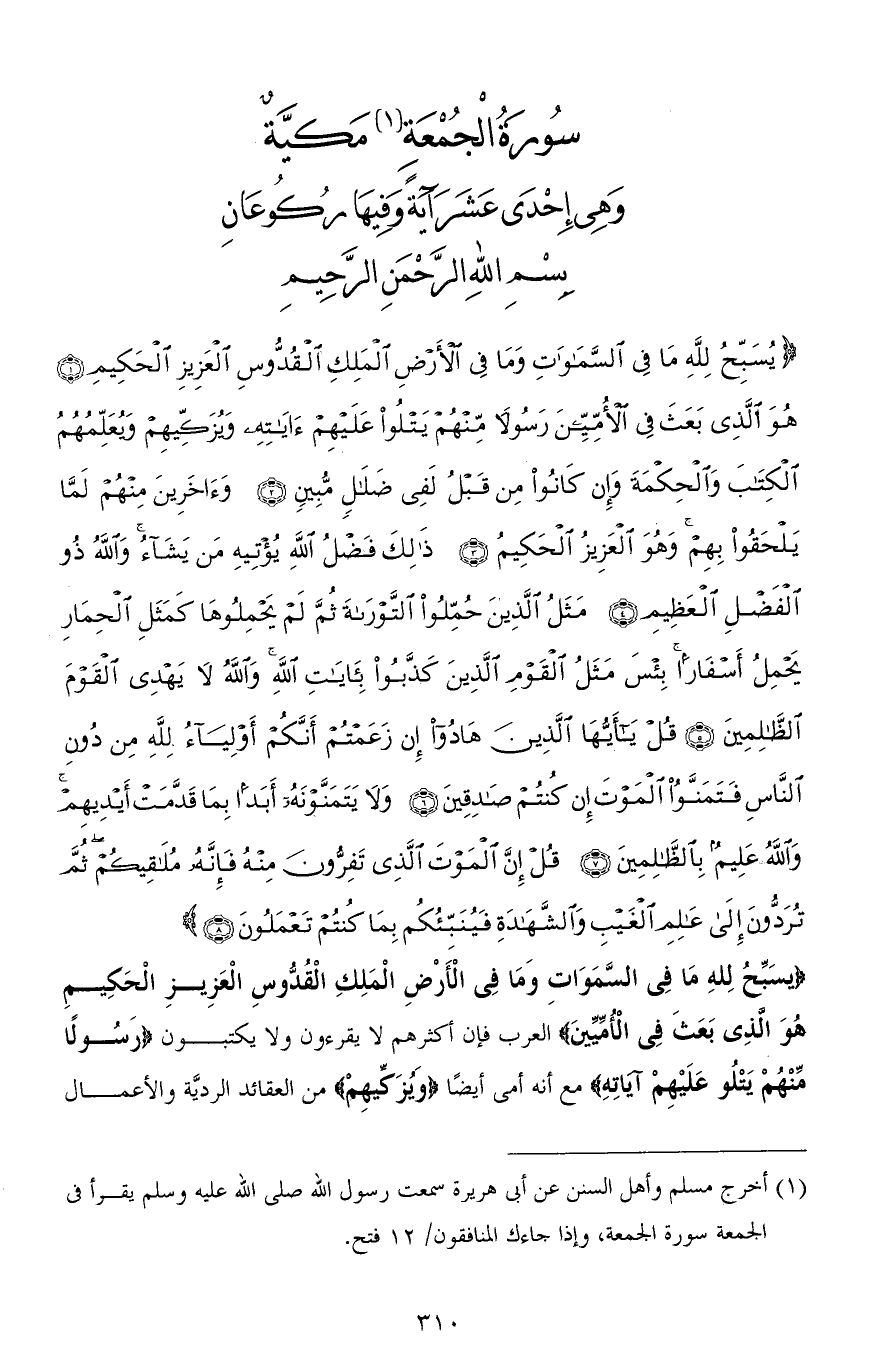 سُورَةُ الْجُمُعَةِ(١) مَكِيَّةٌ
وَهِيَ إِحْدَى عَشَرَ آيَةً وَفِيهَا رُكُوعَانِ
بِسْمِ اللهِ الرَّحْمَنِ الرَّحِيمِ
﴿ يُسَبِّحُ لِلَّهِ مَا فِى ٱلسَّمَٰوَٰتِ وَمَا فِى ٱلْأَرْضِ ٱلْمَلِكِ ٱلْقُدُّوسِ ٱلْعَزِيزِ ٱلْحَكِيمِ ۝١
هُوَ ٱلَّذِى بَعَثَ فِى ٱلْأُمِّيِّـۧنَ رَسُولًا مِّنْهُمْ يَتْلُوا۟ عَلَيْهِمْ ءَايَٰتِهِۦ وَيُزَكِّيهِمْ وَيُعَلِّمُهُمُ
ٱلْكِتَٰبَ وَٱلْحِكْمَةَ وَإِن كَانُوا۟ مِن قَبْلُ لَفِى ضَلَٰلٍ مُّبِينٍ ۝٢ وَءَاخَرِينَ مِنْهُمْ لَمَّا
يَلْحَقُوا۟ بِهِمْ ۚ وَهُوَ ٱلْعَزِيزُ ٱلْحَكِيمُ ۝٣ ذَٰلِكَ فَضْلُ ٱللَّهِ يُؤْتِيهِ مَن يَشَآءُ ۚ وَٱللَّهُ ذُو
ٱلْفَضْلِ ٱلْعَظِيمِ ۝٤ مَثَلُ ٱلَّذِينَ حُمِّلُوا۟ ٱلتَّوْرَىٰةَ ثُمَّ لَمْ يَحْمِلُوهَا كَمَثَلِ ٱلْحِمَارِ
يَحْمِلُ أَسْفَارًۢا ۚ بِئْسَ مَثَلُ ٱلْقَوْمِ ٱلَّذِينَ كَذَّبُوا۟ بِـَٔايَٰتِ ٱللَّهِ ۚ وَٱللَّهُ لَا يَهْدِى ٱلْقَوْمَ
ٱلظَّٰلِمِينَ ۝٥ قُلْ يَٰٓأَيُّهَا ٱلَّذِينَ هَادُوٓا۟ إِن زَعَمْتُمْ أَنَّكُمْ أَوْلِيَآءُ لِلَّهِ مِن دُونِ
ٱلنَّاسِ فَتَمَنَّوُا۟ ٱلْمَوْتَ إِن كُنتُمْ صَٰدِقِينَ ۝٦ وَلَا يَتَمَنَّوْنَهُۥٓ أَبَدًۢا بِمَا قَدَّمَتْ أَيْدِيهِمْ ۚ
وَٱللَّهُ عَلِيمٌۢ بِٱلظَّٰلِمِينَ ۝٧ قُلْ إِنَّ ٱلْمَوْتَ ٱلَّذِى تَفِرُّونَ مِنْهُ فَإِنَّهُۥ مُلَٰقِيكُمْ ۖ ثُمَّ
تُرَدُّونَ إِلَىٰ عَٰلِمِ ٱلْغَيْبِ وَٱلشَّهَٰدَةِ فَيُنَبِّئُكُم بِمَا كُنتُمْ تَعْمَلُونَ ۝٨ ﴾
﴿يسَبِّحُ لِلهِ مَا فِى السَّمَوَاتِ وَمَا فِى الْأَرْضِ الْمَلِكِ الْقُدُّوسِ الْعَزِيــزِ الْحَكِيـــمِ
هُوَ الَّذِى بَعَثَ فِى الْأُمِّيِّينَ﴾ العرب فإن أكثرهم لا يقرءون ولا يكتبـــون ﴿رَسُــولًا
مِّنْهُمْ يَتْلُو عَلَيْهِمْ آيَاتِهِ﴾ مع أنه أمى أيضًا ﴿وَيُزَكِّيهِمْ﴾ من العقائد الرديَّة والأعمـــال
(١) أخرج مسلم وأهل السنن عن أبى هريرة سمعت رسول الله صلى الله عليه وسلم يقـرأ فى
الجمعة سورة الجمعة، وإذا جاءك المنافقون/ ١٢ فتح.
٣١٠